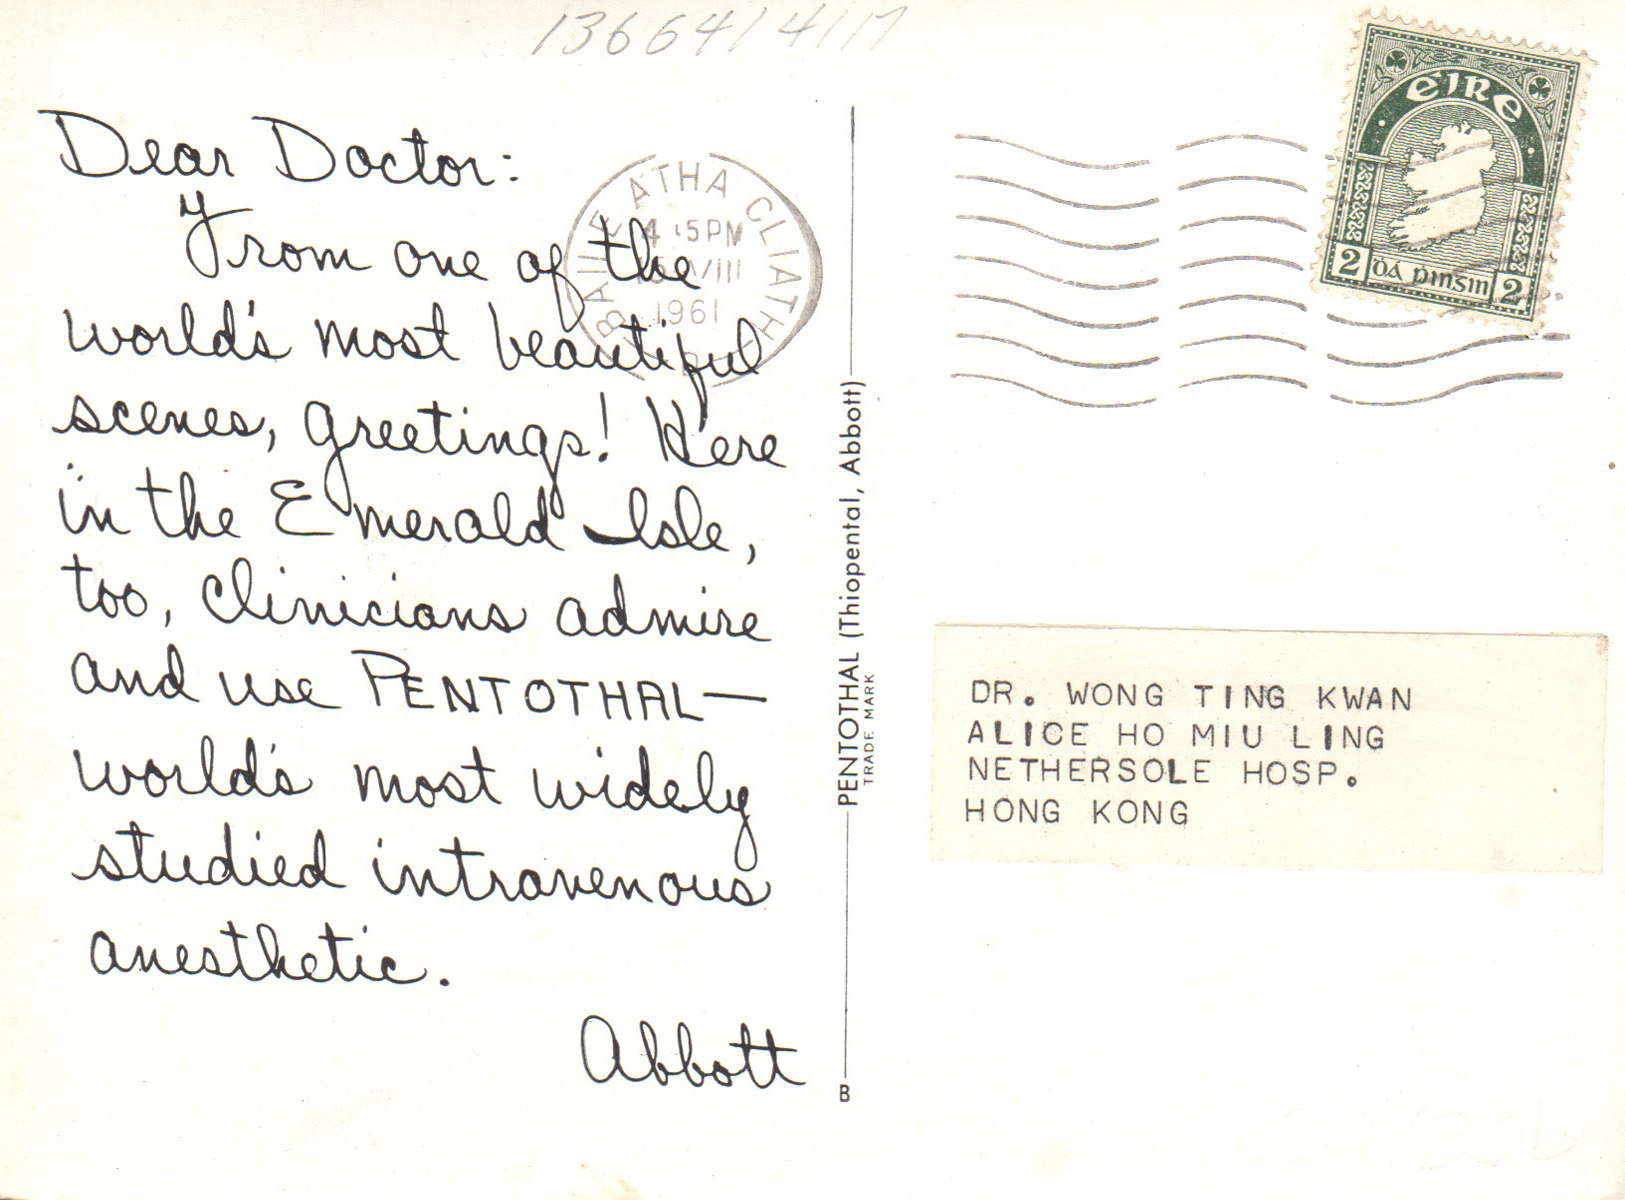 1366414117
Dear Doctor:
From one of the
world's most beautiful
scenes, greetings! Here
in the Emerald Isle,
too, clinicians admire
and use PENTOTHAL—
world's most widely
studied intravenous
anesthetic.
Abbott
BAILE ATHA CLIATH
PM
VIII
1961
PENTOTHAL (Thiopental, Abbott)
TRADE MARK
B
éIRe
2 DÁ pINSIN 2
DR. WONG TING KWAN
ALICE HO MIU LING
NETHERSOLE HOSP.
HONG KONG